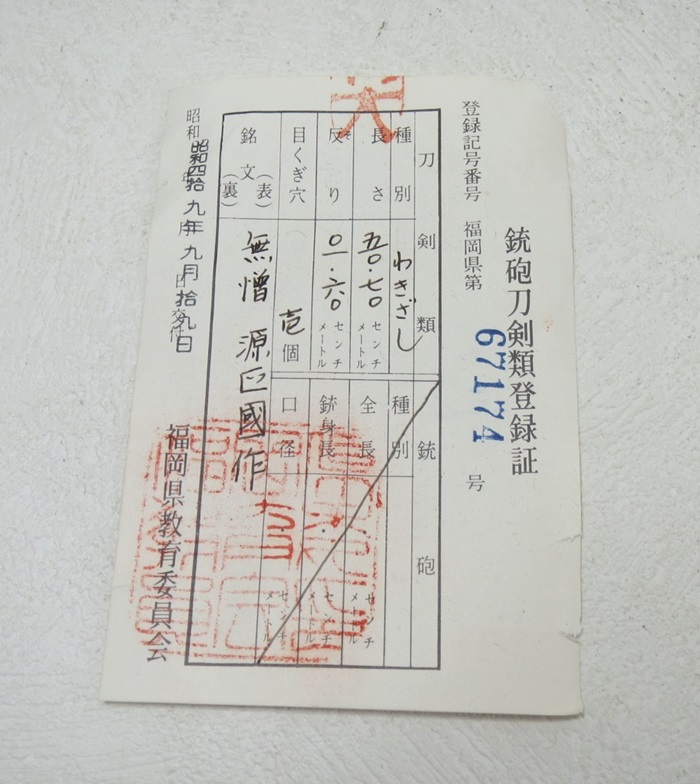 銃砲刀剣類登録証
登録記号番号 福岡県第 67174 号
刀剣類
種別 わきざし
長さ 五〇・七〇 センチメートル
反り 〇一・六〇 センチメートル
目くぎ穴 壱個
銘文(表)(裏) 無憎 源正國作
銃砲
種別
全長 ・ センチメートル
銃身長 ・ センチメートル
口径 ・ センチメートル
昭和 昭和四拾九年九月拾九日交付
福岡県教育委員会